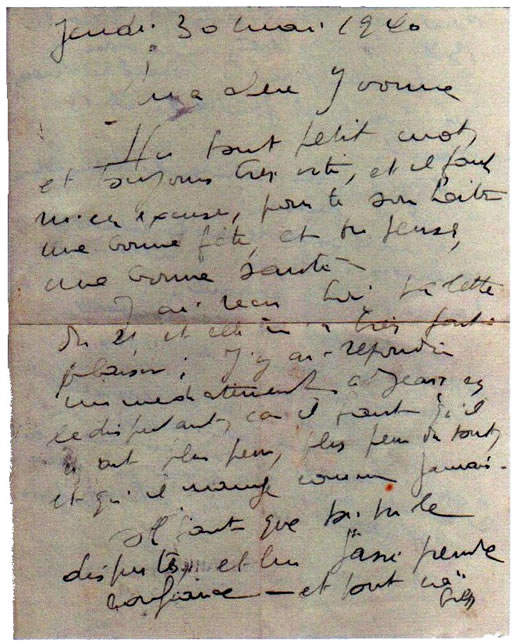 Jeudi 30 mai 1940
Ma chère Yvonne
Un tout petit mot,
et toujours très vite, et il faut
m'en excuser, pour te souhaiter
une bonne fête, et tu penses,
une bonne santé
J'ai reçu hier ta lettre
du 21 et elle m'a très fait
plaisir; J'y ai répondu
immédiatement à Jean en
le disputant, car il faut qu'il
n'ait plus peur, plus peur du tout,
et qu'il mange comme jamais.
Il faut que toi tu le
disputes, et lui fasse prendre
confiance — et tout ira